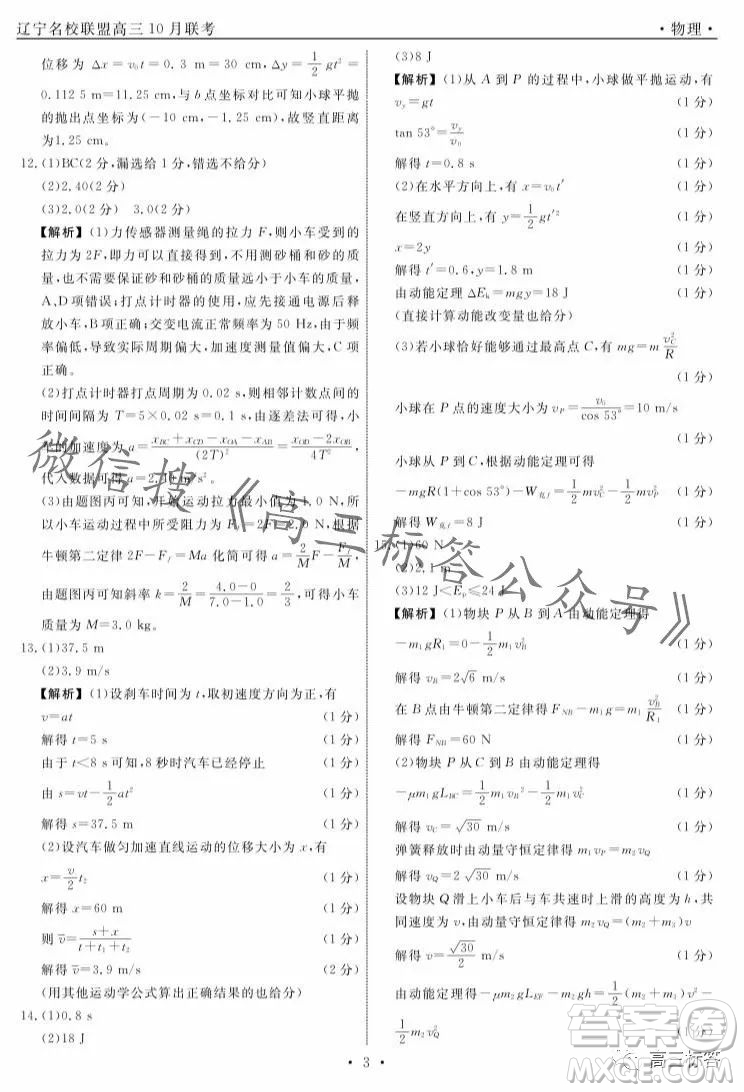 辽宁名校联盟高三10月联考
·物理·
位移为 Δx=v₀t=0.3 m=30 cm, Δy=1/2 gt²=
0.112 5 m=11.25 cm,与 b 点坐标对比可知小球平抛
的抛出点坐标为(-10 cm,-1.25 cm),故竖直距离
为1.25 cm。
12.(1)BC(2分,漏选给1分,错选不给分)
(2)2.40(2分)
(3)2.0(2分) 3.0(2分)
【解析】(1)力传感器测量绳的拉力 F,则小车受到的
拉力为 2F,即力可以直接得到,不用测砂桶和砂的质
量,也不需要保证砂和砂桶的质量远小于小车的质量,
A、D项错误;打点计时器的使用,应先接通电源后释
放小车,B项正确;交变电流正常频率为 50 Hz,由于频
率偏低,导致实际周期偏大,加速度测量值偏大,C 项
正确。
(2)打点计时器打点周期为 0.02 s,则相邻计数点间的
时间间隔为 T=5×0.02 s=0.1 s,由逐差法可得,小
车的加速度为 a=(x_BC+x_CD-x_OA-x_AB)/(2T)²=(x_OD-2x_OB)/4T²,
代入数据可得 a=2.40 m/s²。
(3)由题图丙可知,开始运动拉力最小值为1.0 N,所
以小车运动过程中所受阻力为 F_f=2F=2.0 N,根据
牛顿第二定律 2F-F_f=Ma 化简可得 a=2/M F-F_f/M,
由题图丙可知斜率 k=2/M=(4.0-0)/(7.0-1.0)=2/3,可得小车
质量为 M=3.0 kg。
13.(1)37.5 m
(2)3.9 m/s
【解析】(1)设刹车时间为 t,取初速度方向为正,有
v=at (1分)
解得 t=5 s (1分)
由于 t<8 s 可知,8秒时汽车已经停止 (1分)
由 s=vt-1/2 at² (1分)
解得 s=37.5 m (1分)
(2)设汽车做匀加速直线运动的位移大小为 x,有
x=v/2 t₂ (1分)
解得 x=60 m (1分)
则 v̄=(s+x)/(t+t₁+t₂) (1分)
解得 v̄=3.9 m/s (2分)
(用其他运动学公式算出正确结果的也给分)
14.(1)0.8 s
(2)18 J
(3)8 J
【解析】(1)从 A 到 P 的过程中,小球做平抛运动,有
v_y=gt (1分)
tan 53°=v_y/v₀ (1分)
解得 t=0.8 s (1分)
(2)在水平方向上,有 x=v₀t′ (1分)
在竖直方向上,有 y=1/2 gt′² (1分)
x=2y (1分)
解得 t′=0.6,y=1.8 m (1分)
由动能定理 ΔE_k=mgy=18 J (1分)
(直接计算动能改变量也给分)
(3)若小球恰好能够通过最高点 C,有 mg=m v_C²/R
(1分)
小球在 P 点的速度大小为 v_P=v₀/cos 53°=10 m/s
(1分)
小球从 P 到 C,根据动能定理得
-mgR(1+cos 53°)-W克f=1/2 mv_C²-1/2 mv_P² (1分)
解得 W克f=8 J (1分)
15.(1)60 N
(2)2.1 m
(3)12 J<E_p≤24 J
【解析】(1)物块 P 从 B 到 A 由动能定理得
-m₁gR₁=0-1/2 m₁v_B² (1分)
解得 v_B=2√6 m/s (1分)
在 B 点由牛顿第二定律得 F_NB-m₁g=m₁ v_B²/R₁ (1分)
解得 F_NB=60 N (1分)
(2)物块 P 从 C 到 B 由动能定理得
-μm₁gL_BC=1/2 m₁v_B²-1/2 m₁v_C² (1分)
解得 v_C=√30 m/s (1分)
弹簧释放时由动量守恒定律得 m₁v_P=m₂v_Q (1分)
解得 v_Q=2√30 m/s (1分)
设物块 Q 滑上小车后与车共速时上滑的高度为 h,共
同速度为 v,由动量守恒定律得 m₂v_Q=(m₂+m₃)v
(1分)
解得 v=√30/2 m/s (1分)
由动能定理得 -μm₂gL_EF-m₂gh=1/2 (m₂+m₃)v²-
1/2 m₂v_Q² (1分)
· 3 ·
微信搜《高三标答公众号》
高三标答
答案圈
MXQE.COM